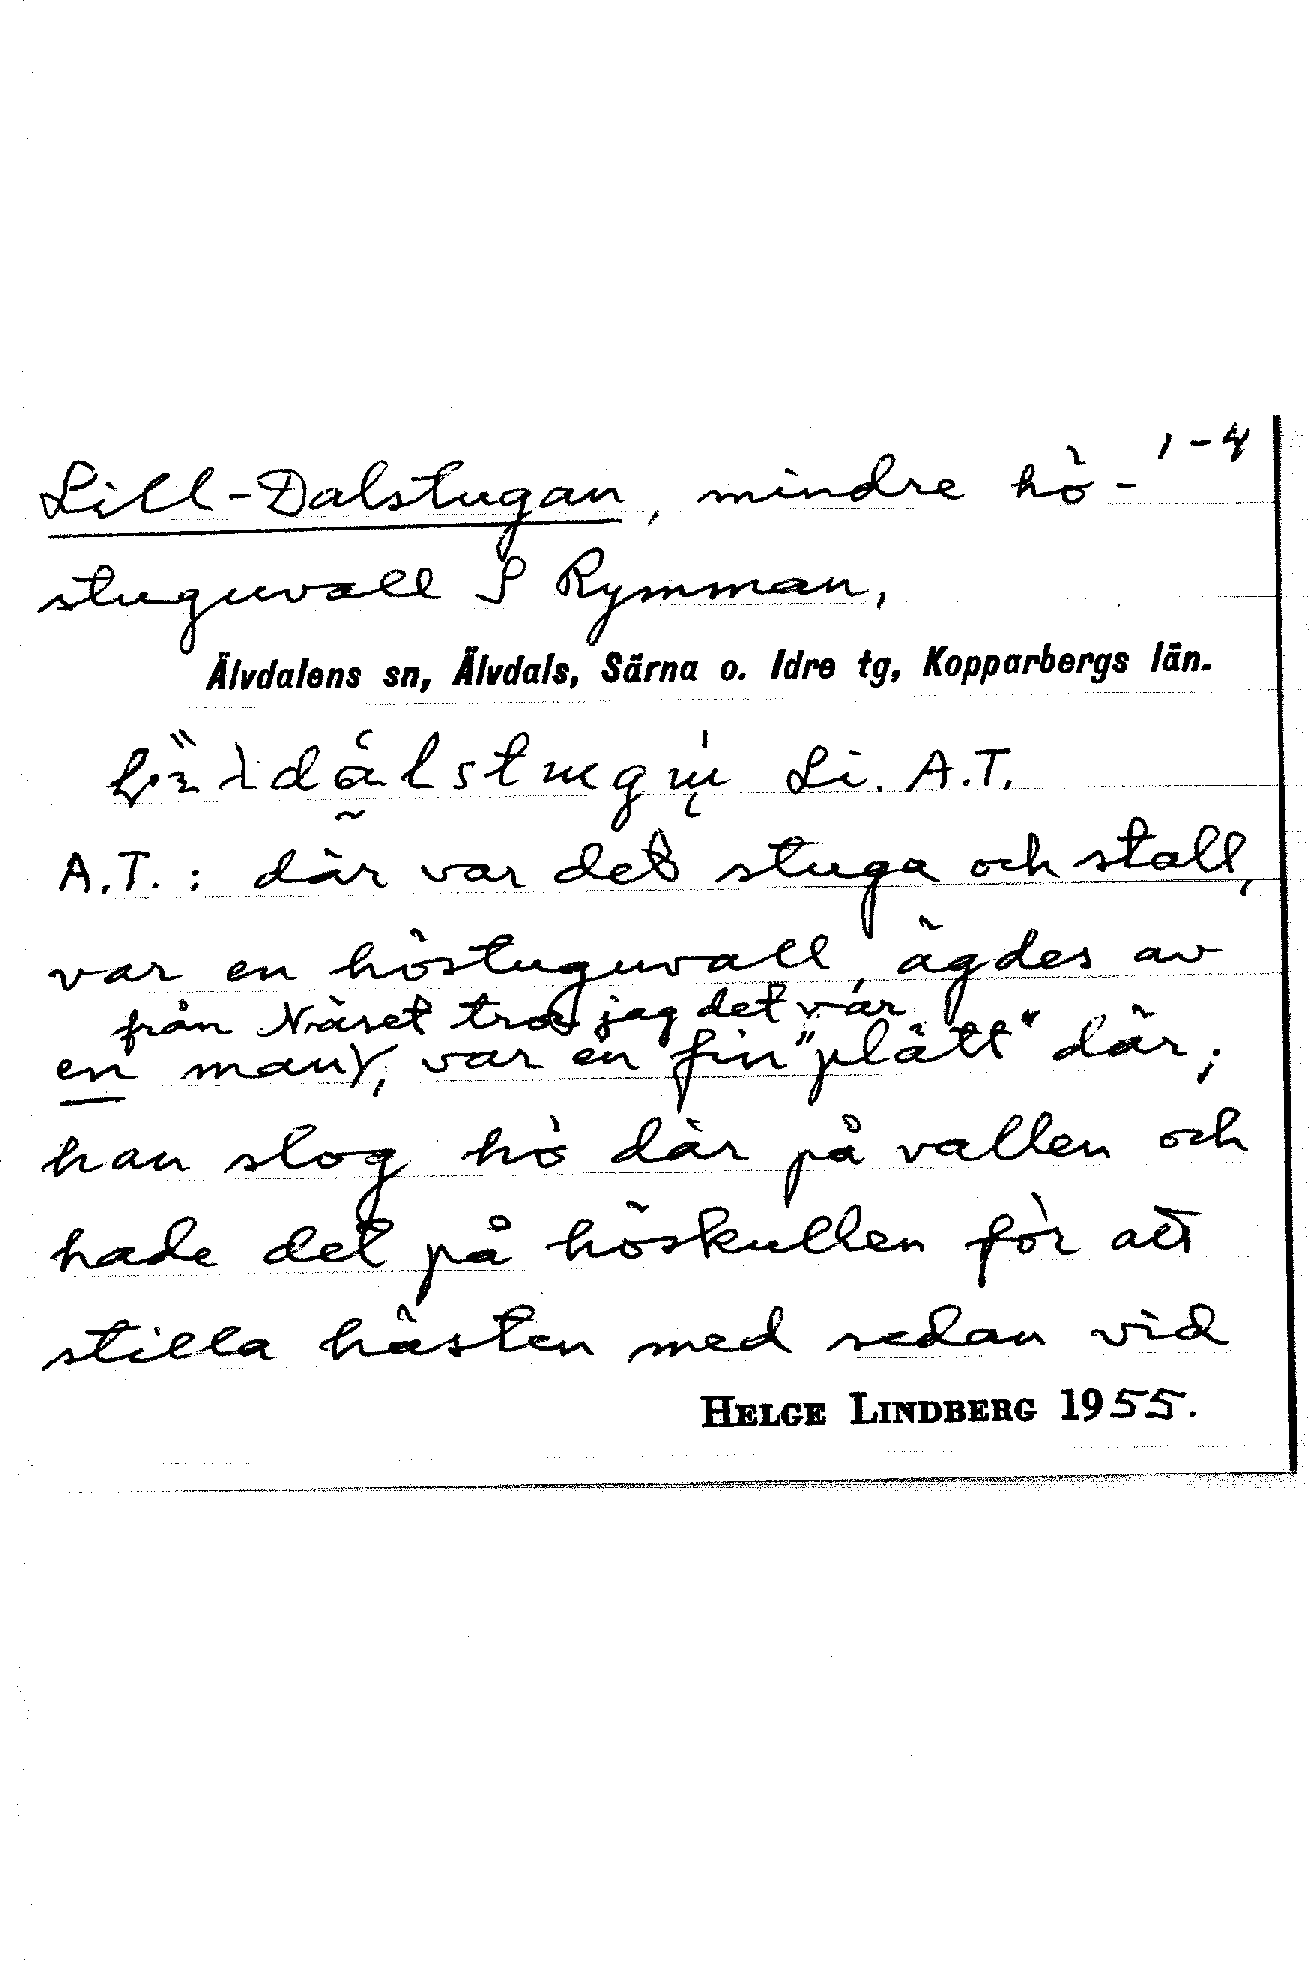 1-4
Lill-Dalstugan, mindre hö-
stuguvall S Rymman,
Älvdalens sn, Älvdals, Särna o. Idre tg, Kopparbergs län.
Li. A.T.
A.T. : där var det stuga och stall,
var en höstuguvall, ägdes av
från Näset tror jag det var
en man, var en fin "plätt" där;
han slog hö där på vallen och
hade det på höskullen för att
stilla hästen med sedan vid
HELGE LINDBERG 1955.